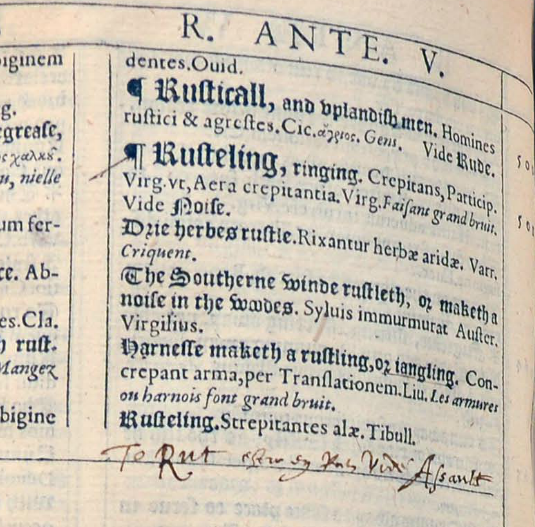 R. ANTE. V.
biginem
g.
egrease,
χαλκοῦ.
u, nielle
um fer-
ce. Ab-
es.Cla.
h rust.
Mangez
bigine
dentes.Ouid.
¶ Rusticall, and vplandish men, Homines
rustici & agrestes.Cic.ἄγριος. Gens. Vide Rude.
¶ Rusteling, ringing. Crepitans, Particip.
Virg.vt, Aera crepitantia.Virg.Faisant grand bruit.
Vide Noise.
Drie herbes rustle.Rixantur herbæ aridæ. Varr.
Criquent.
The Southerne winde rustleth, or maketh a
noise in the woodes. Syluis immurmurat Auster.
Virgilius.
Harnesse maketh a rustling, or iangling. Con-
crepant arma, per Translationem.Liu. Les armures
ou harnois font grand bruit.
Rusteling.Strepitantes alæ. Tibull.
To Rut Vide Assault